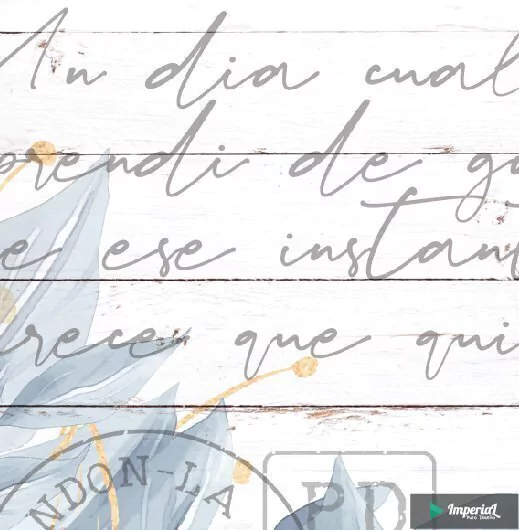 Un dia cual
prendi de gu
e ese instan
rece, que qui
NDON-LA
PD
Imperial
Puro Diseño